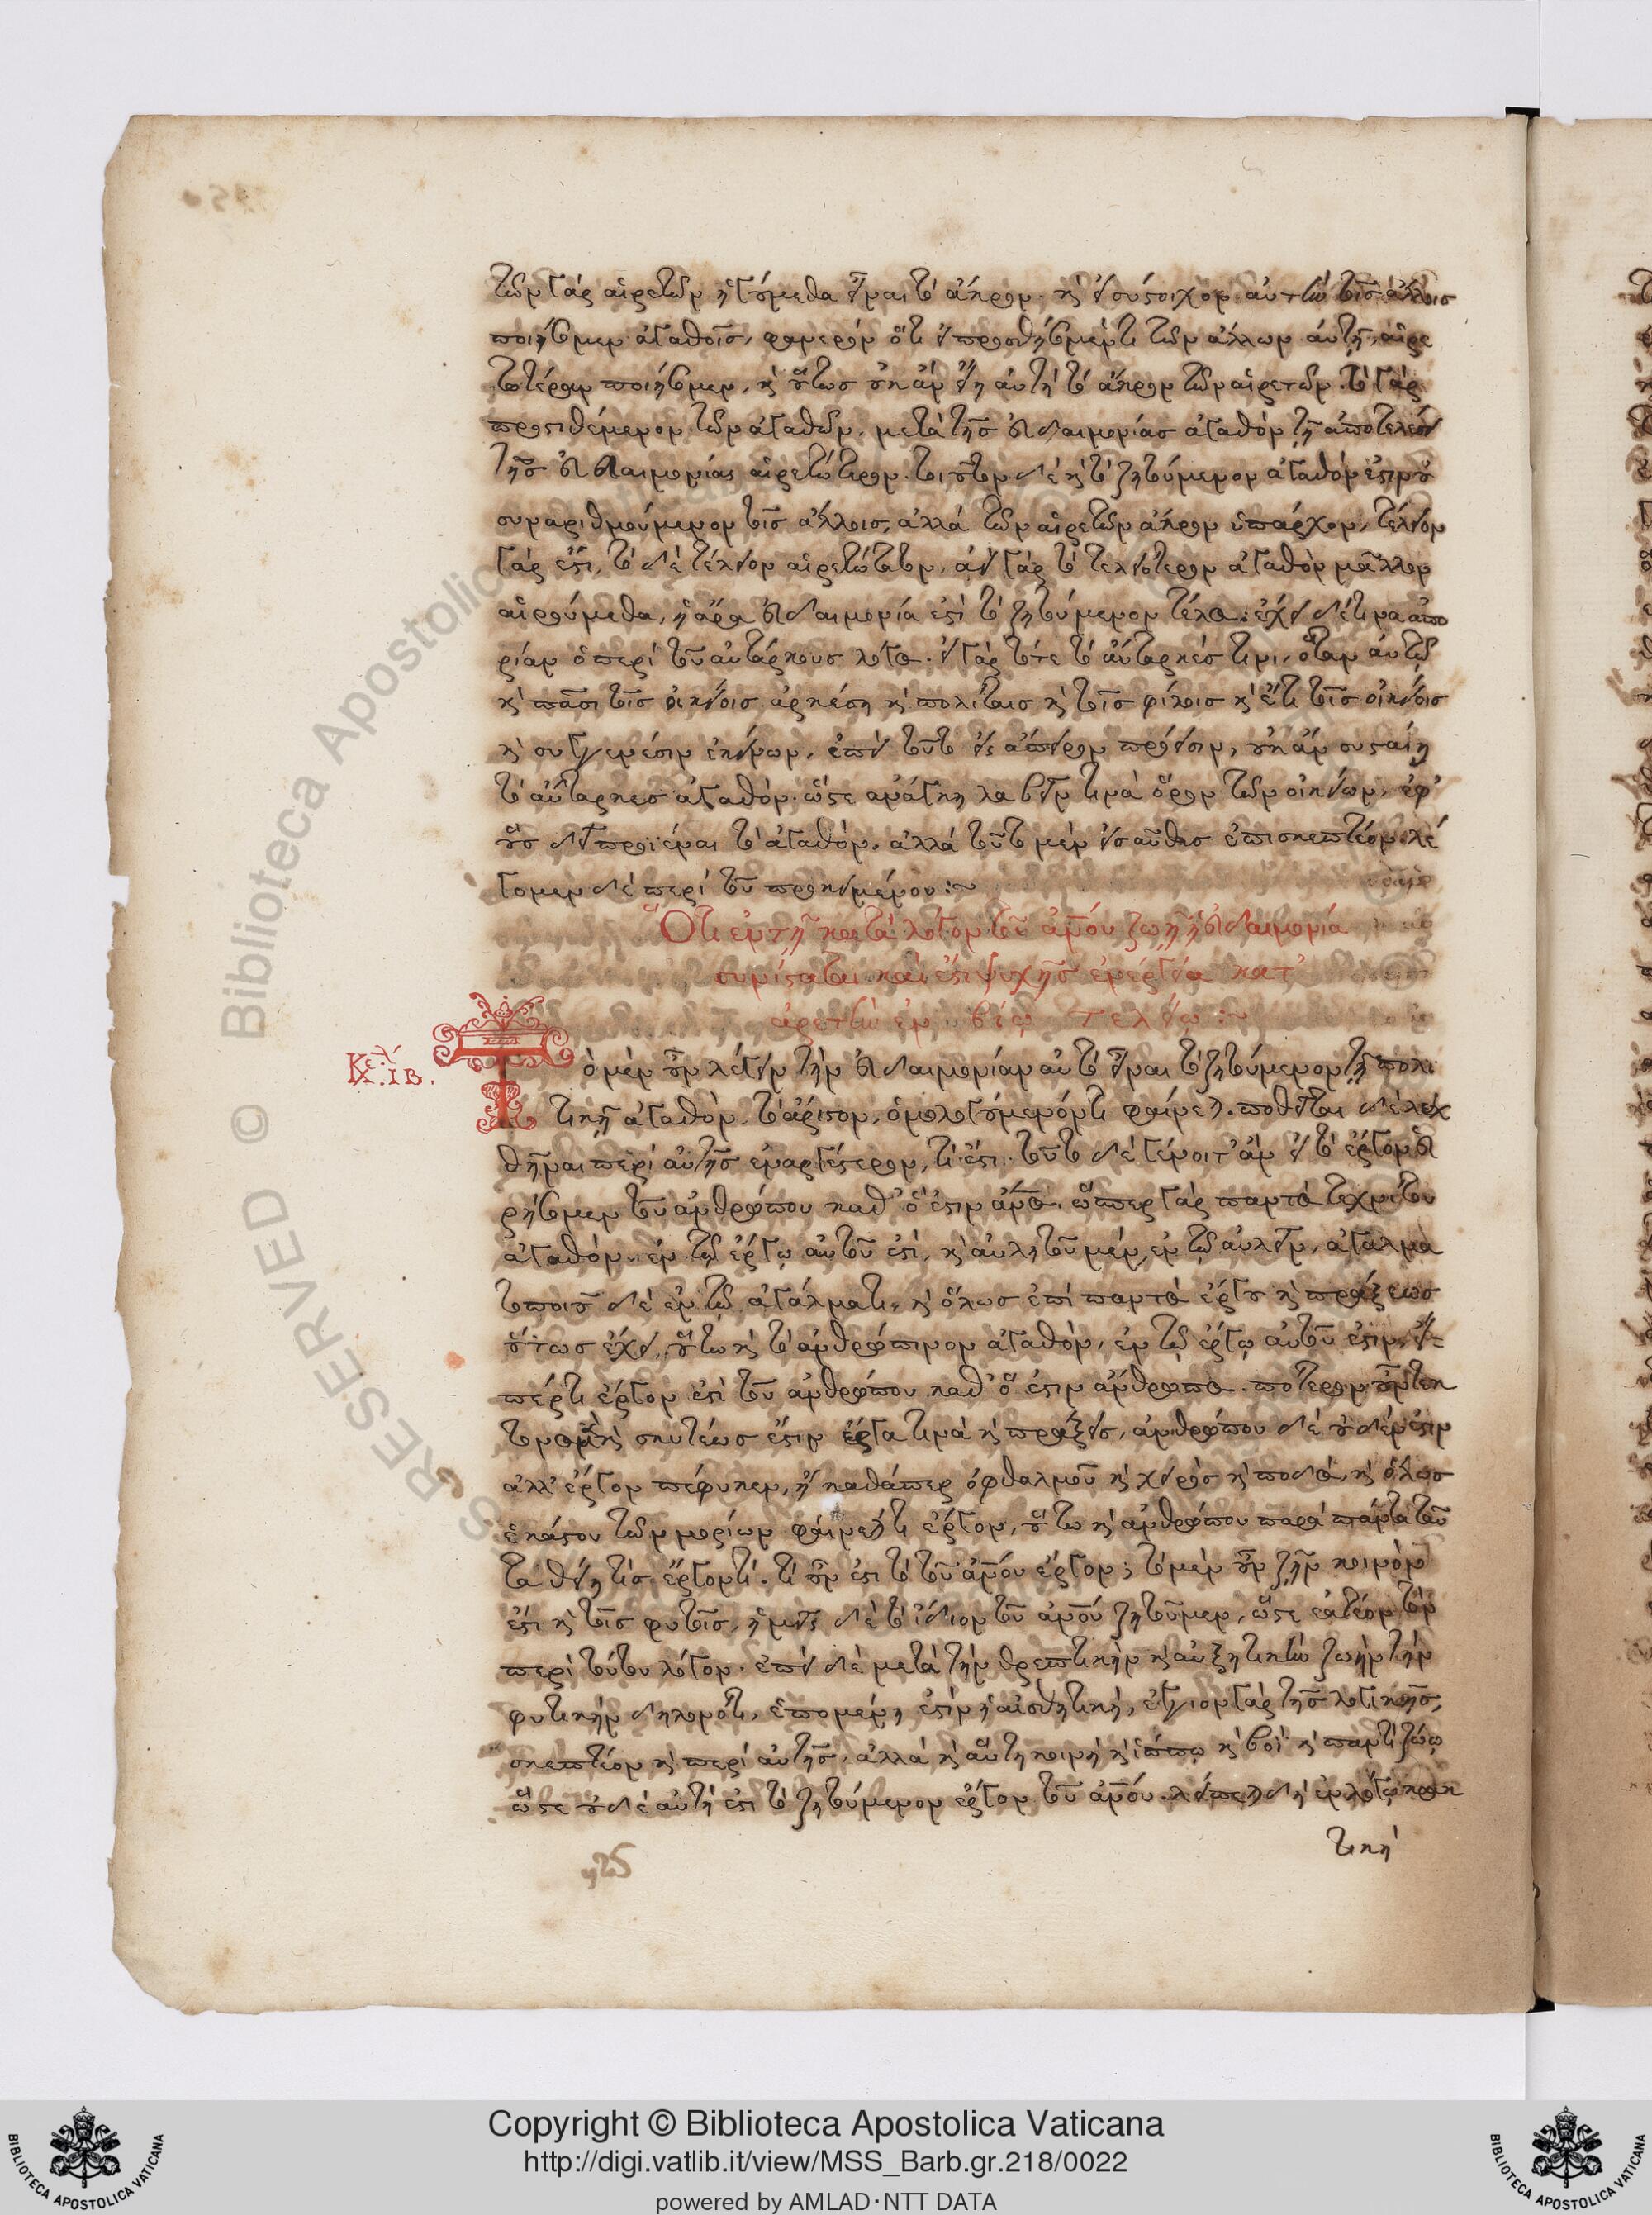 τῶν γὰρ αἱρετῶν ἡγούμεθα εἶναι τὸ ἄκρον. καὶ εἰ σύστοιχον αὐτὴν τοῖς ἄλλοις
ποιήσομεν ἀγαθοῖς, φανερὸν ὅτι εἰ προσθήσομέν τι τῶν ἄλλων αὐτῇ, αἱρε
τωτέραν ποιήσομεν, καὶ οὕτως οὐκ ἂν εἴη αὐτὴ τὸ ἄκρον τῶν αἱρετῶν. τὸ γὰρ
προστιθέμενον τῶν ἀγαθῶν, μετὰ τῆς εὐδαιμονίας ἀγαθόν τι ἀποτελέσει
τῆς εὐδαιμονίας αἱρετώτερον. τοιοῦτον δὲ καὶ τὸ ζητούμενον ἀγαθόν ἐστιν οὐ
συναριθμούμενον τοῖς ἄλλοις, ἀλλὰ τῶν αἱρετῶν ἄκρον ὑπάρχον, τέλειον
γάρ ἐστι, τὸ δὲ τέλειον αἱρετώτατον, ἀεὶ γὰρ τὸ τελειότερον ἀγαθὸν μᾶλλον
αἱρούμεθα, ἡ ἄρα εὐδαιμονία ἐστὶ τὸ ζητούμενον τέλος. ἔχει δέ τινα ἀπο
ρίαν ὁ περὶ τοῦ αὐτάρκους λόγος. εἰ γὰρ τότε τὸ αὔταρκές τινι, ὅταν αὐτῷ
καὶ πᾶσι τοῖς οἰκείοις ἀρκέσῃ καὶ πολίταις καὶ τοῖς φίλοις καὶ ἔτι τοῖς οἰκείοις
καὶ συγγενέσιν ἐκείνων, ἐπεὶ τοῦτο εἰς ἄπειρον πρόεισιν, οὐκ ἂν συσταίη
τὸ αὔταρκες ἀγαθόν. ὥστε ἀνάγκη λαβεῖν τινὰ ὅρον τῶν οἰκείων, ἐφ'
οὓς δεῖ προϊέναι τὸ ἀγαθόν. ἀλλὰ τοῦτο μὲν εἰσαῦθις ἐπισκεπτέον. λέ
γομεν δὲ περὶ τοῦ προκειμένου:~
Ὅτι ἐν τῇ κατὰ λόγον τοῦ ἀν̅ο̅υ ζωῇ ἡ εὐδαιμονία
συνίσταται καὶ ἔστι ψυχῆς ἐνέργεια κατ'
ἀρετὴν ἐν βίῳ τελείῳ:~
Κεφ. ΙΒ.
Τὸ μὲν οὖν λέγειν τὴν εὐδαιμονίαν αὐτὸ εἶναι τὸ ζητούμενον τῇ πολι
τικῇ ἀγαθόν, τὸ ἄριστον, ὁμολογούμενόν τι φαίνεται. ποθεῖται δὲ λεχ
θῆναι περὶ αὐτῆς ἐναργέστερον, τί ἐστι. τοῦτο δὲ γένοιτ' ἂν εἰ τὸ ἔργον εὑ
ρήσομεν τοῦ ἀνθρώπου καθ' ὅ ἐστιν ἄν̅ο̅ς. ὥσπερ γὰρ παντὸς τεχνίτου
ἀγαθὸν ἐν τῷ ἔργῳ αὐτοῦ ἐστί, καὶ αὐλητοῦ μὲν, ἐν τῷ αὐλεῖν, ἀγαλμα
τοποιοῦ δὲ ἐν τῷ ἀγάλματι, καὶ ὅλως ἐπὶ παντὸς ἔργου καὶ πράξεως
οὕτως ἔχει, οὕτω καὶ τὸ ἀνθρώπινον ἀγαθόν, ἐν τῷ ἔργῳ αὐτοῦ ἐστιν, εἴ-
πέρ τι ἔργον ἐστὶ τοῦ ἀνθρώπου καθ' ὅ ἐστιν ἄνθρωπος. πότερον οὖν τέκ
τονος μὲν καὶ σκυτέως ἔστιν ἔργα τινὰ καὶ πράξεις, ἀνθρώπου δὲ οὐδέν ἐστιν
ἀλλ' ἀργὸν πέφυκεν, ἢ καθάπερ ὀφθαλμοῦ καὶ χειρὸς καὶ ποδός, καὶ ὅλως
ἑκάστου τῶν μορίων φαίνεταί τι ἔργον, οὕτω καὶ ἀνθρώπου παρὰ πάντα ταῦ
τα θείη τις ἔργον τί. τί οὖν ἐστι τὸ τοῦ ἀν̅ο̅υ ἔργον; τὸ μὲν οὖν ζῆν κοινὸν
ἐστι καὶ τοῖς φυτοῖς, ἡμεῖς δὲ τὸ ἴδιον τοῦ ἀν̅ο̅υ ζητοῦμεν, ὥστε ἐατέον τὸν
περὶ τούτου λόγον. ἐπεὶ δὲ μετὰ τὴν θρεπτικὴν καὶ αὐξητικὴν ζωὴν τὴν
φυτικὴν δηλονότι, ἑπομένη ἐστὶν ἡ αἰσθητική, ἔγγιον γὰρ τῆς λογικῆς,
σκεπτέον καὶ περὶ αὐτῆς. ἀλλὰ καὶ αὕτη κοινὴ καὶ ἵππῳ καὶ βοῒ καὶ παντὶ ζώῳ
ὥστε οὐδὲ αὐτή ἐστι τὸ ζητούμενον ἔργον τοῦ ἀν̅ο̅υ. λείπεται δὴ ἐν λόγῳ πρακ
τικὴ
Copyright © Biblioteca Apostolica Vaticana
http://digi.vatlib.it/view/MSS_Barb.gr.218/0022
powered by AMLAD·NTT DATA